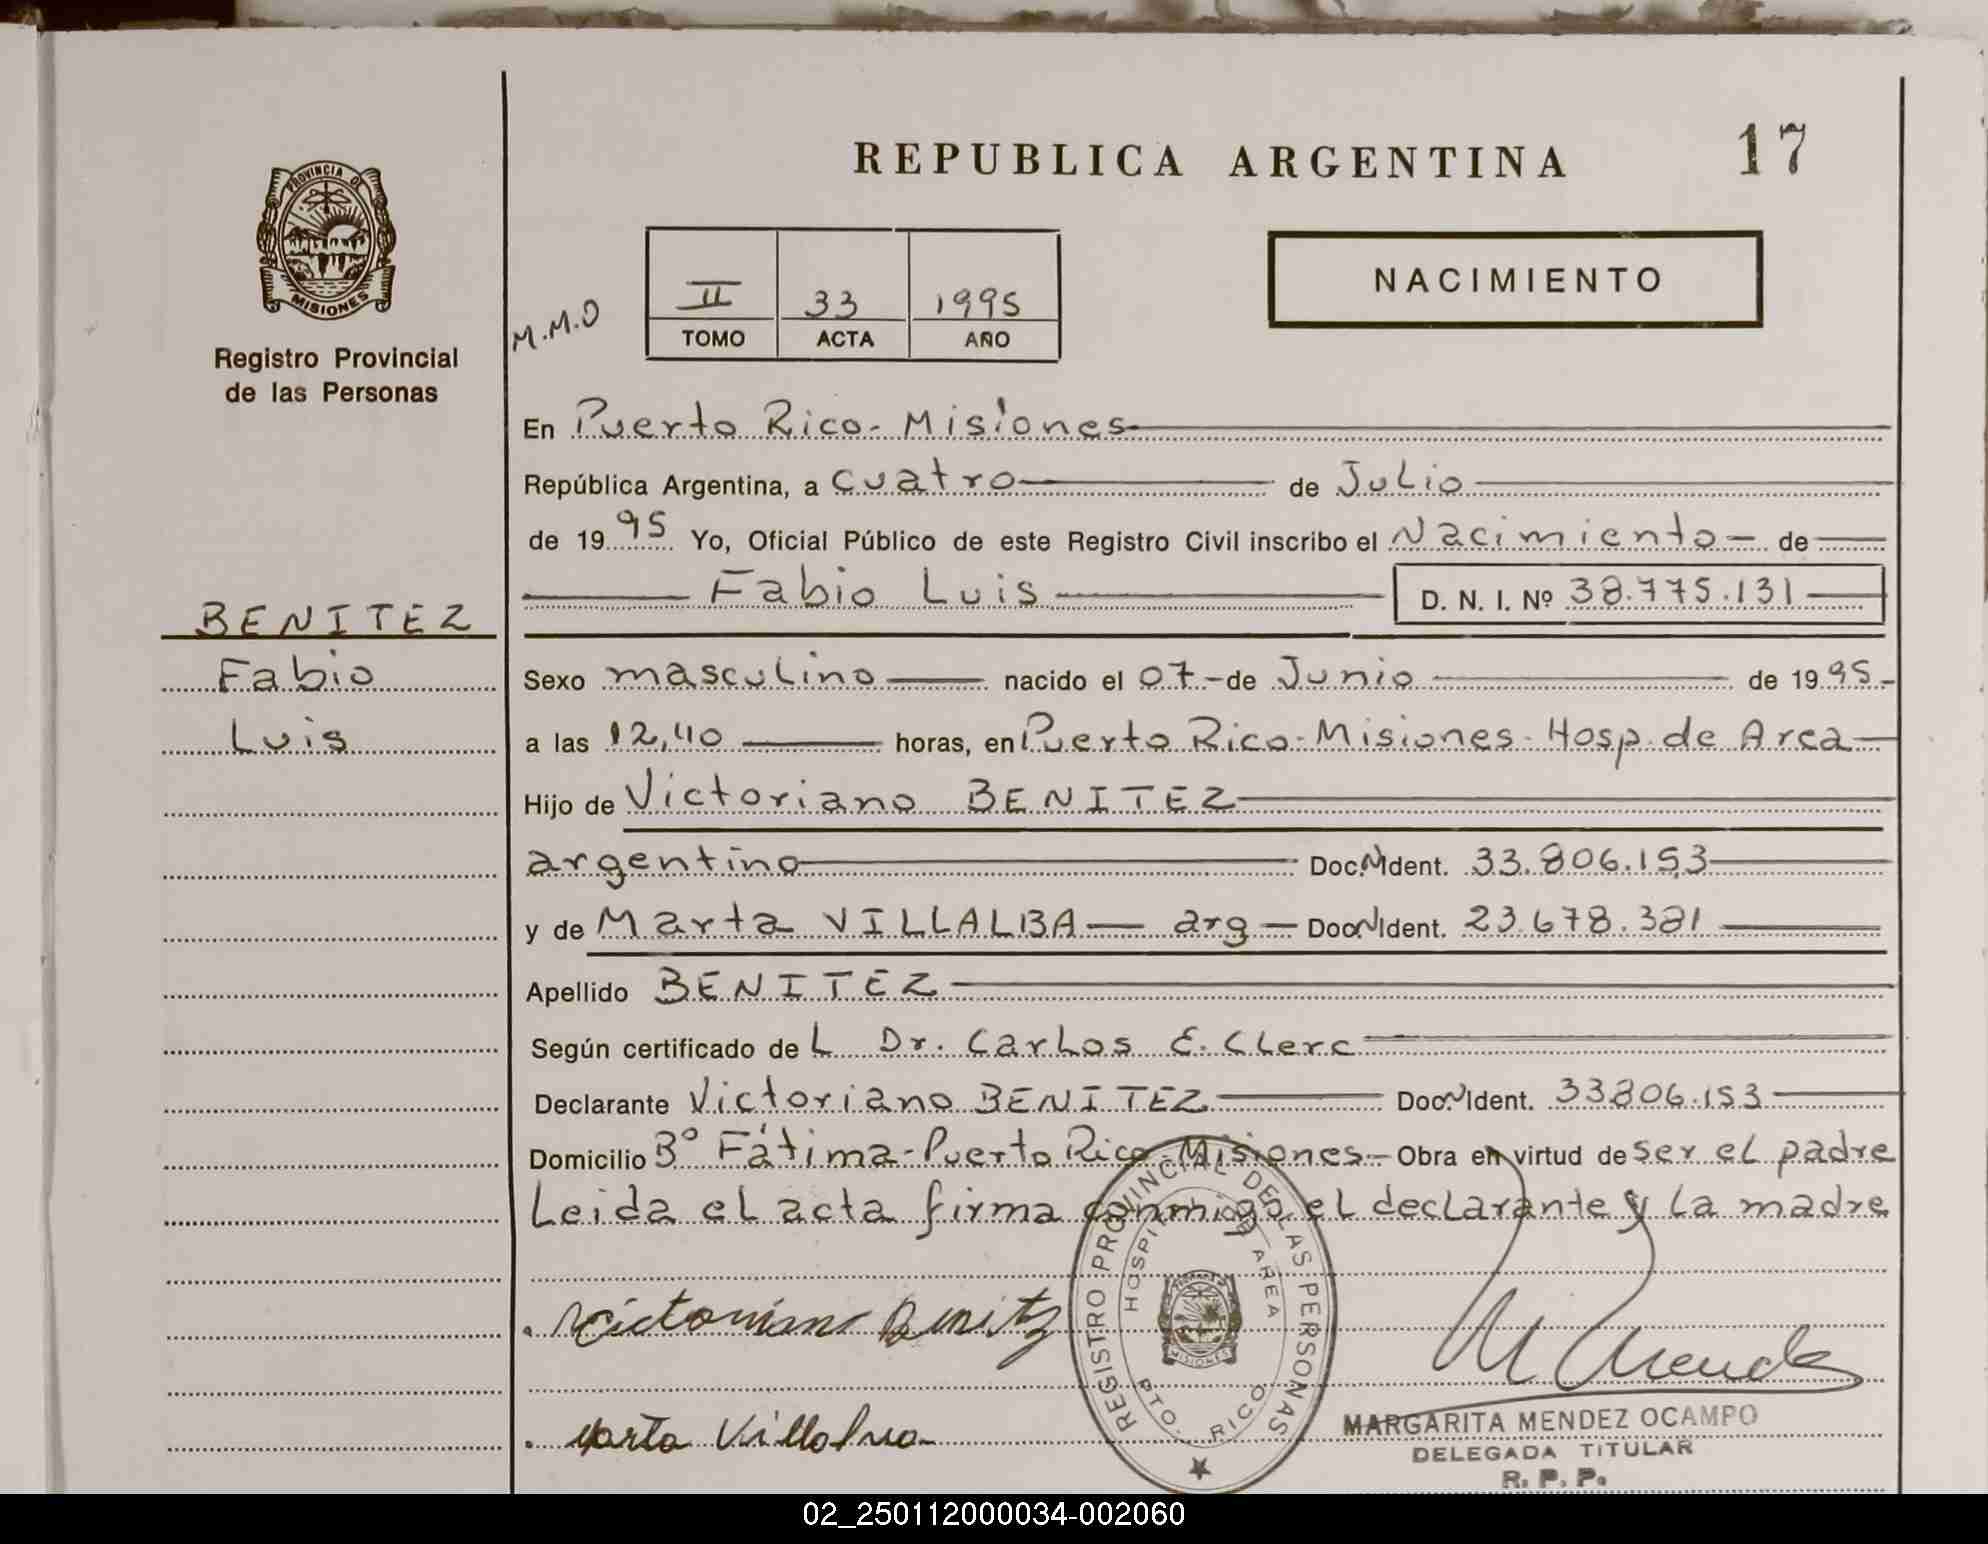 REPUBLICA ARGENTINA
17
PROVINCIA DE
MISIONES
Registro Provincial
de las Personas
M.M.O
II 33 1995
TOMO ACTA AÑO
NACIMIENTO
En Puerto Rico - Misiones
República Argentina, a cuatro de Julio
de 1995 Yo, Oficial Público de este Registro Civil inscribo el Nacimiento de
Fabio Luis D. N. I. Nº 38.775.131
BENITEZ
Fabio
Luis
Sexo masculino nacido el 07 - de Junio de 1995
a las 12,40 horas, en Puerto Rico - Misiones - Hosp. de Area
Hijo de Victoriano BENITEZ
argentino Doc. N Ident. 33.806.153
y de Marta VILLALBA arg Doc. N Ident. 23.678.381
Apellido BENITEZ
Según certificado de L Dr. Carlos E. Clerc
Declarante Victoriano BENITEZ Doc. N Ident. 33.806.153
Domicilio Bº Fátima - Puerto Rico - Misiones - Obra en virtud de ser el padre
Leida el acta firma conmigo el declarante y la madre
REGISTRO PROVINCIAL DE LAS PERSONAS
HOSPITAL DE AREA
MISIONES
PTO. RICO
Victoriano Benitz
M Mendez
Marta Villalva
MARGARITA MENDEZ OCAMPO
DELEGADA TITULAR
R. P. P.
02_250112000034-002060